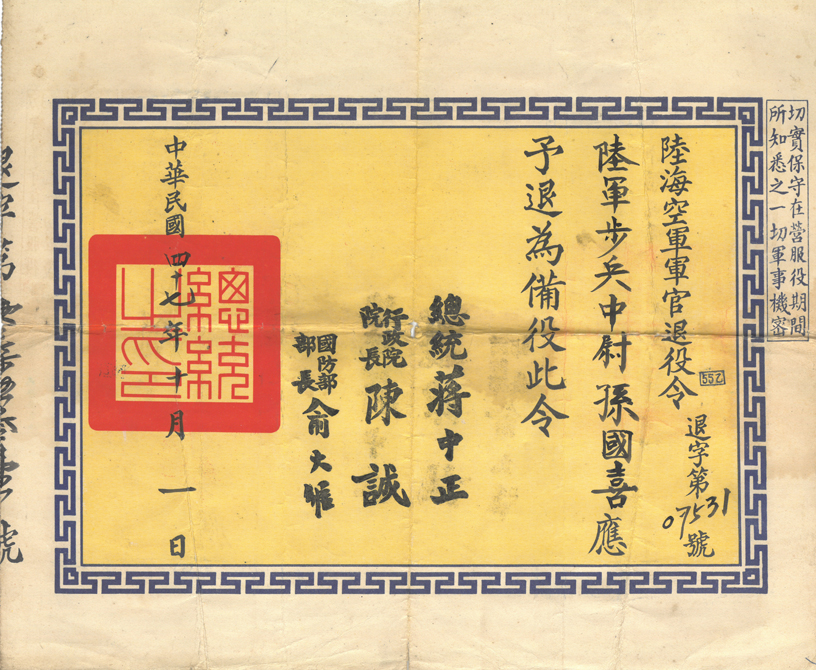 切實保守在營服役期間
所知悉之一切軍事機密
陸海空軍軍官退役令
552
退字第07531號
陸軍步兵中尉孫國喜應
予退為備役此令
總統蔣中正
行政院院長陳誠
國防部部長俞大維
中華民國四十七年十月一日
總統之印